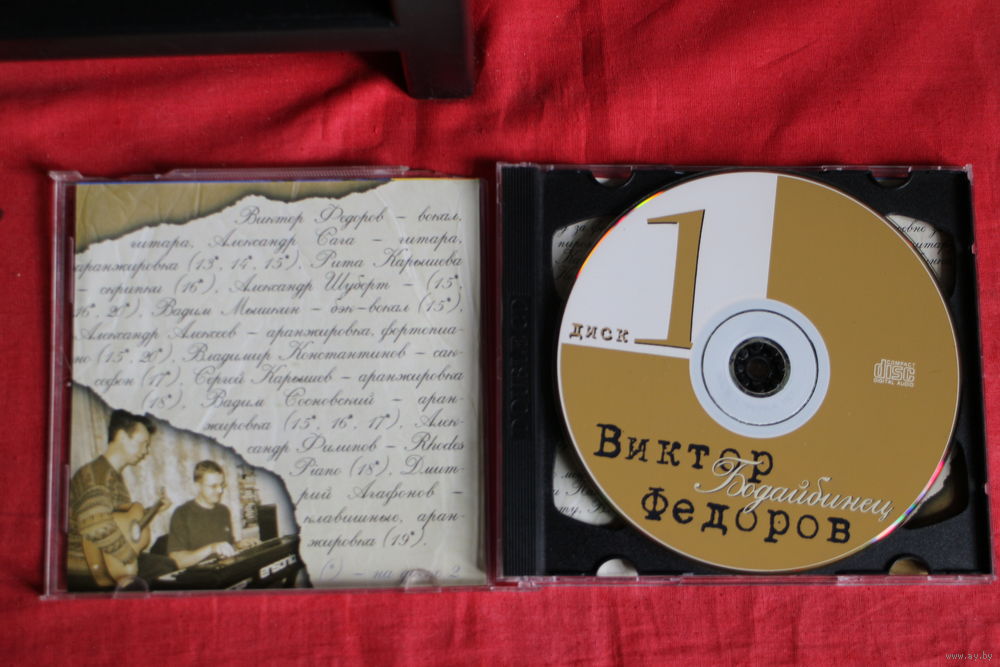 Виктор Федоров – вокал,
гитара, Александр Сага – гитара,
аранжировка (13*, 14*, 15*), Рита Карышева
– скрипки (16*), Александр Шуберт – (15*,
16*, 20*), Вадим Мышкин – бэк-вокал (15*),
Александр Алексеев – аранжировка, фортепиа-
но (15*, 20*), Владимир Константинов – сак-
софон (17*), Сергей Карышев – аранжировка
(18*), Вадим Сосновский – аран-
жировка (15*, 16*, 17*), Алек-
сандр Филипов – Rhodes
Piano (18*), Дмит-
рий Агафонов –
клавишные, аран-
жировка (19*).
(*) – на диске 2
1
диск
COMPACT
disc
DIGITAL AUDIO
Виктор
Бодайбинец
Федоров
www.ay.by